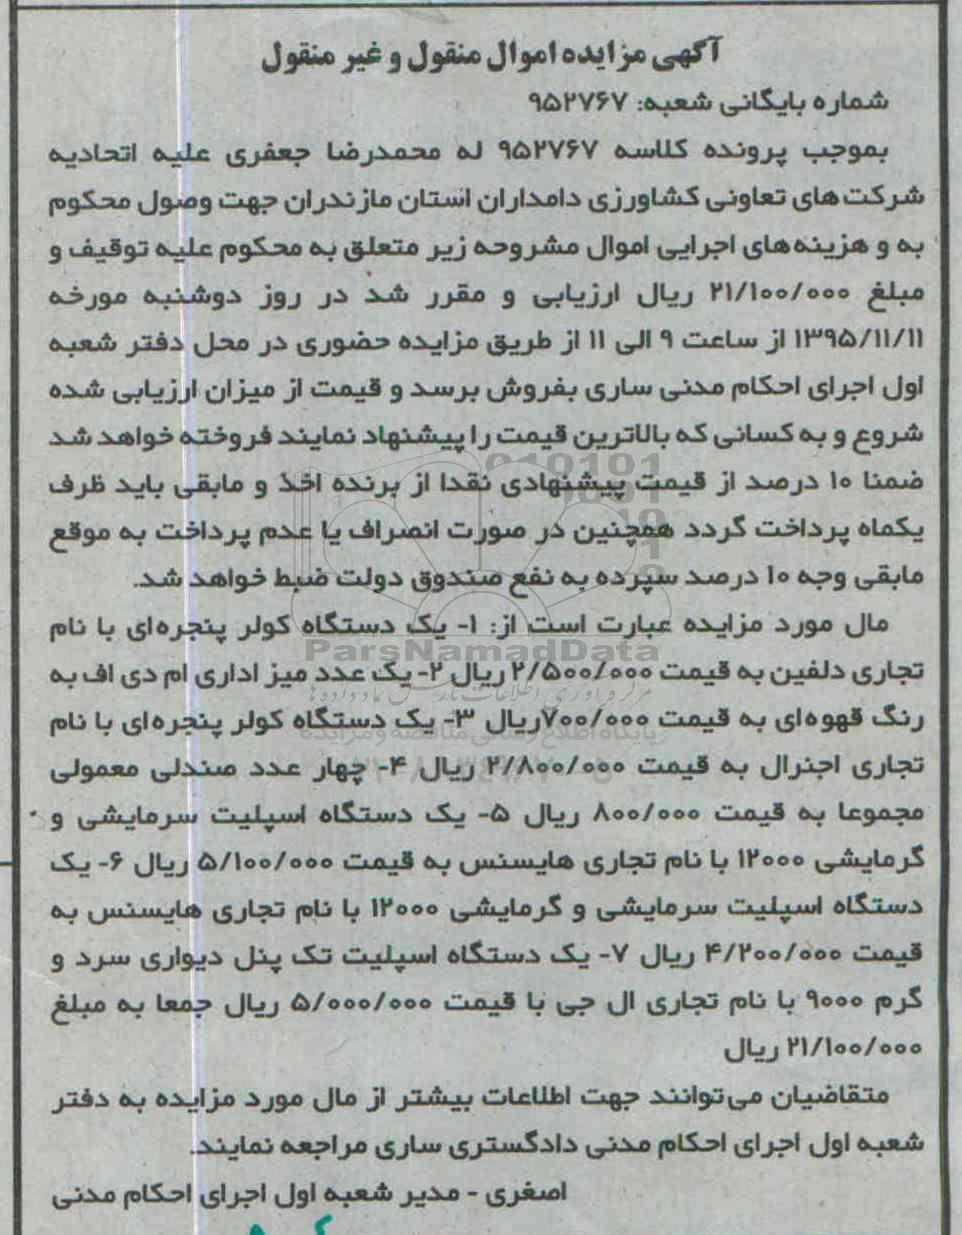 آگهی مزایده اموال منقول و غیر منقول
شماره بایگانی شعبه: ۹۵۲۷۶۷
بموجب پرونده کلاسه ۹۵۲۷۶۷ له محمدرضا جعفری علیه اتحادیه
شرکت های تعاونی کشاورزی دامداران استان مازندران جهت وصول محکوم
به و هزینه های اجرایی اموال مشروحه زیر متعلق به محکوم علیه توقیف و
مبلغ ۲۱/۱۰۰/۰۰۰ ریال ارزیابی و مقرر شد در روز دوشنبه مورخه
۱۳۹۵/۱۱/۱۱ از ساعت ۹ الی ۱۱ از طریق مزایده حضوری در محل دفتر شعبه
اول اجرای احکام مدنی ساری بفروش برسد و قیمت از میزان ارزیابی شده
شروع و به کسانی که بالاترین قیمت را پیشنهاد نمایند فروخته خواهد شد
ضمنا ۱۰ درصد از قیمت پیشنهادی نقدا از برنده اخذ و مابقی باید ظرف
یکماه پرداخت گردد همچنین در صورت انصراف یا عدم پرداخت به موقع
مابقی وجه ۱۰ درصد سپرده به نفع صندوق دولت ضبط خواهد شد.
مال مورد مزایده عبارت است از: ۱- یک دستگاه کولر پنجره ای با نام
ParsNamadData
تجاری دلفین به قیمت ۲/۵۰۰/۰۰۰ ریال ۲- یک عدد میز اداری ام دی اف به
رنگ قهوه ای به قیمت ۷۰۰/۰۰۰ریال ۳- یک دستگاه کولر پنجره ای با نام
پایگاه اطلاع رسانی مناقصه و مزایده
تجاری اجنرال به قیمت ۲/۸۰۰/۰۰۰ ریال ۴- چهار عدد صندلی معمولی
مجموعا به قیمت ۸۰۰/۰۰۰ ریال ۵- یک دستگاه اسپلیت سرمایشی و
گرمایشی ۱۲۰۰۰ با نام تجاری هایسنس به قیمت ۵/۱۰۰/۰۰۰ ریال ۶- یک
دستگاه اسپلیت سرمایشی و گرمایشی ۱۲۰۰۰ با نام تجاری هایسنس به
قیمت ۴/۲۰۰/۰۰۰ ریال ۷- یک دستگاه اسپلیت تک پنل دیواری سرد و
گرم ۹۰۰۰ با نام تجاری ال جی با قیمت ۵/۰۰۰/۰۰۰ ریال جمعا به مبلغ
۲۱/۱۰۰/۰۰۰ ریال
متقاضیان می توانند جهت اطلاعات بیشتر از مال مورد مزایده به دفتر
شعبه اول اجرای احکام مدنی دادگستری ساری مراجعه نمایند.
اصغری - مدیر شعبه اول اجرای احکام مدنی